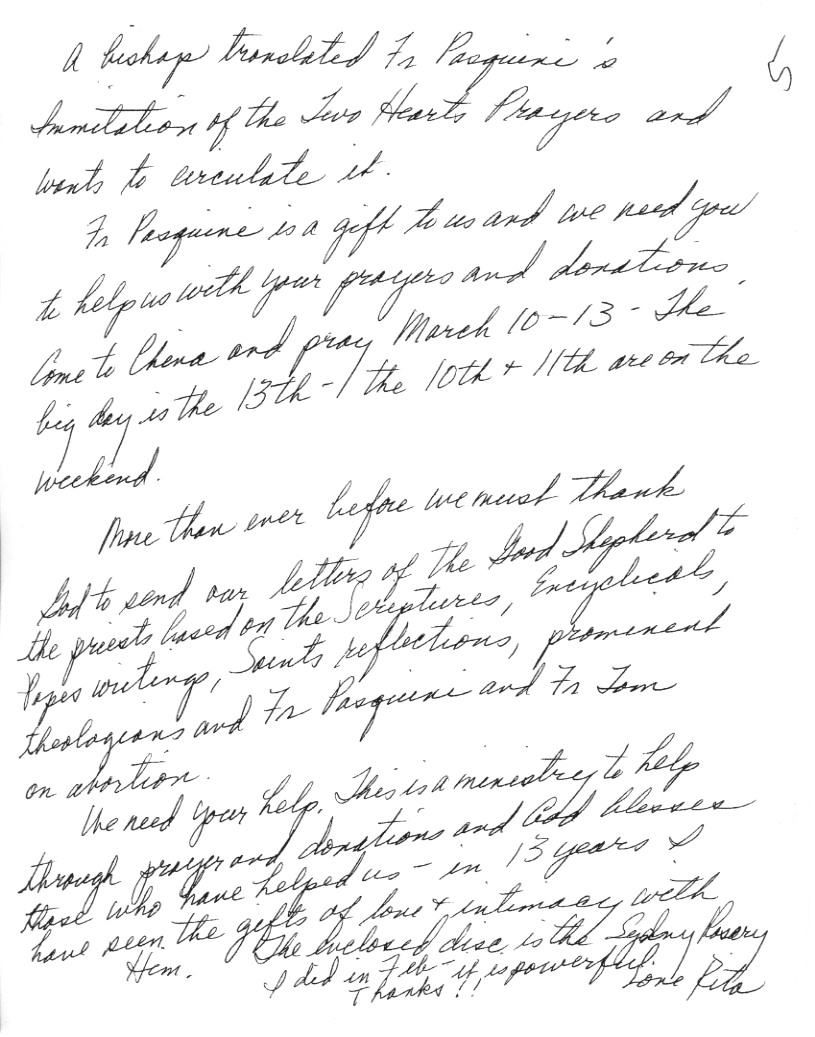 5
A bishop translated Fr Pasquini's
Immitation of the Two Hearts Prayers and
wants to circulate it.
Fr Pasquini is a gift to us and we need you
to help us with your prayers and donations.
Come to China and pray March 10-13 - The
big day is the 13th - the 10th + 11th are on the
weekend.
More than ever before we must thank
God to send our letters of the Good Shepherd to
the priests based on the Scriptures, Encyclicals,
Popes writings, Saints reflections, prominent
theologians and Fr Pasquini and Fr Tom
on abortion.
We need your help. This is a ministry to help
through prayer and donations and God blesses
those who have helped us - in 13 years I
have seen the gifts of love + intimacy with
Him. The enclosed disc is the Sydney Rosary
I did in Feb - it is powerful.
Thanks!! Love Rita